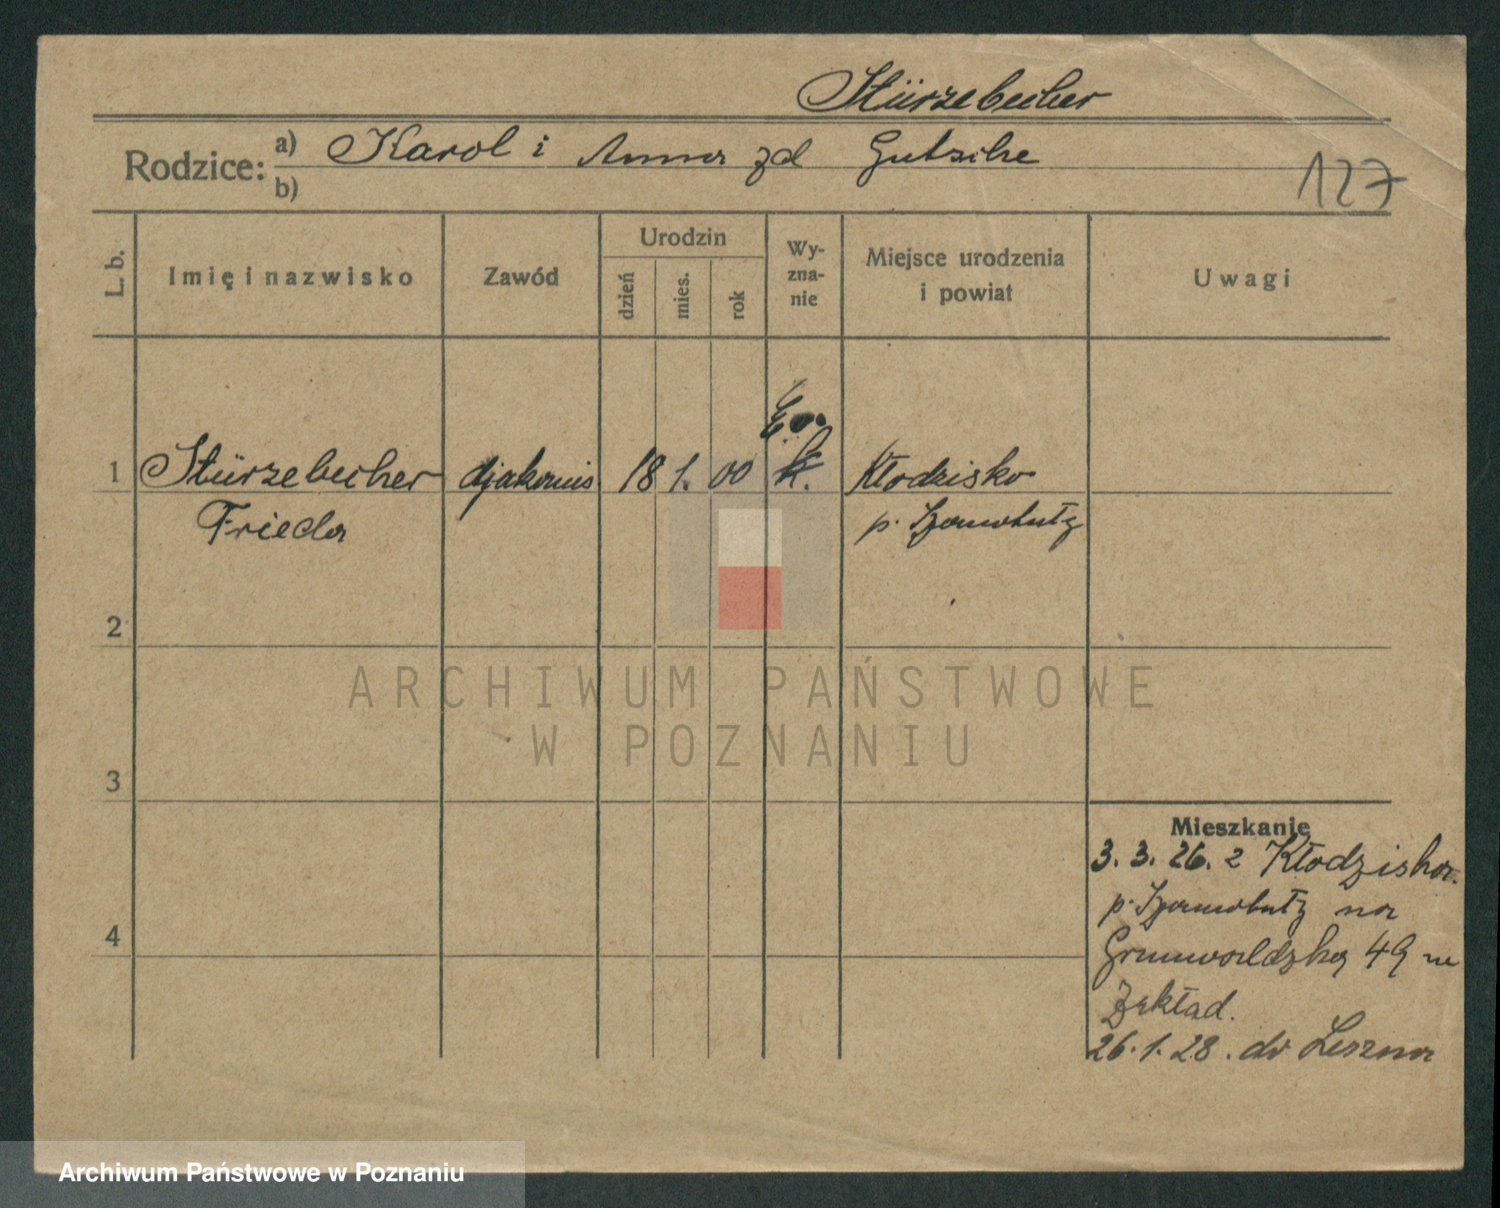 Stürzebecher
Rodzice: a) Karol i Anna zd Gutsche
b)
127
L. b.
Imię i nazwisko
Zawód
Urodzin
dzień
mies.
rok
Wy-
zna-
nie
Miejsce urodzenia
i powiat
Uwagi
Ew.
1 Stürzebecher djakonis 18 1. 00 k. Kłodzisko
Frieda p. Szamotuły
2
3
4
Mieszkanie
3. 3. 26. z Kłodziska
p. Szamotuły na
Grunwaldzką 49 w
Zakład.
26. 1. 28. do Leszna
ARCHIWUM PAŃSTWOWE
W POZNANIU
Archiwum Państwowe w Poznaniu